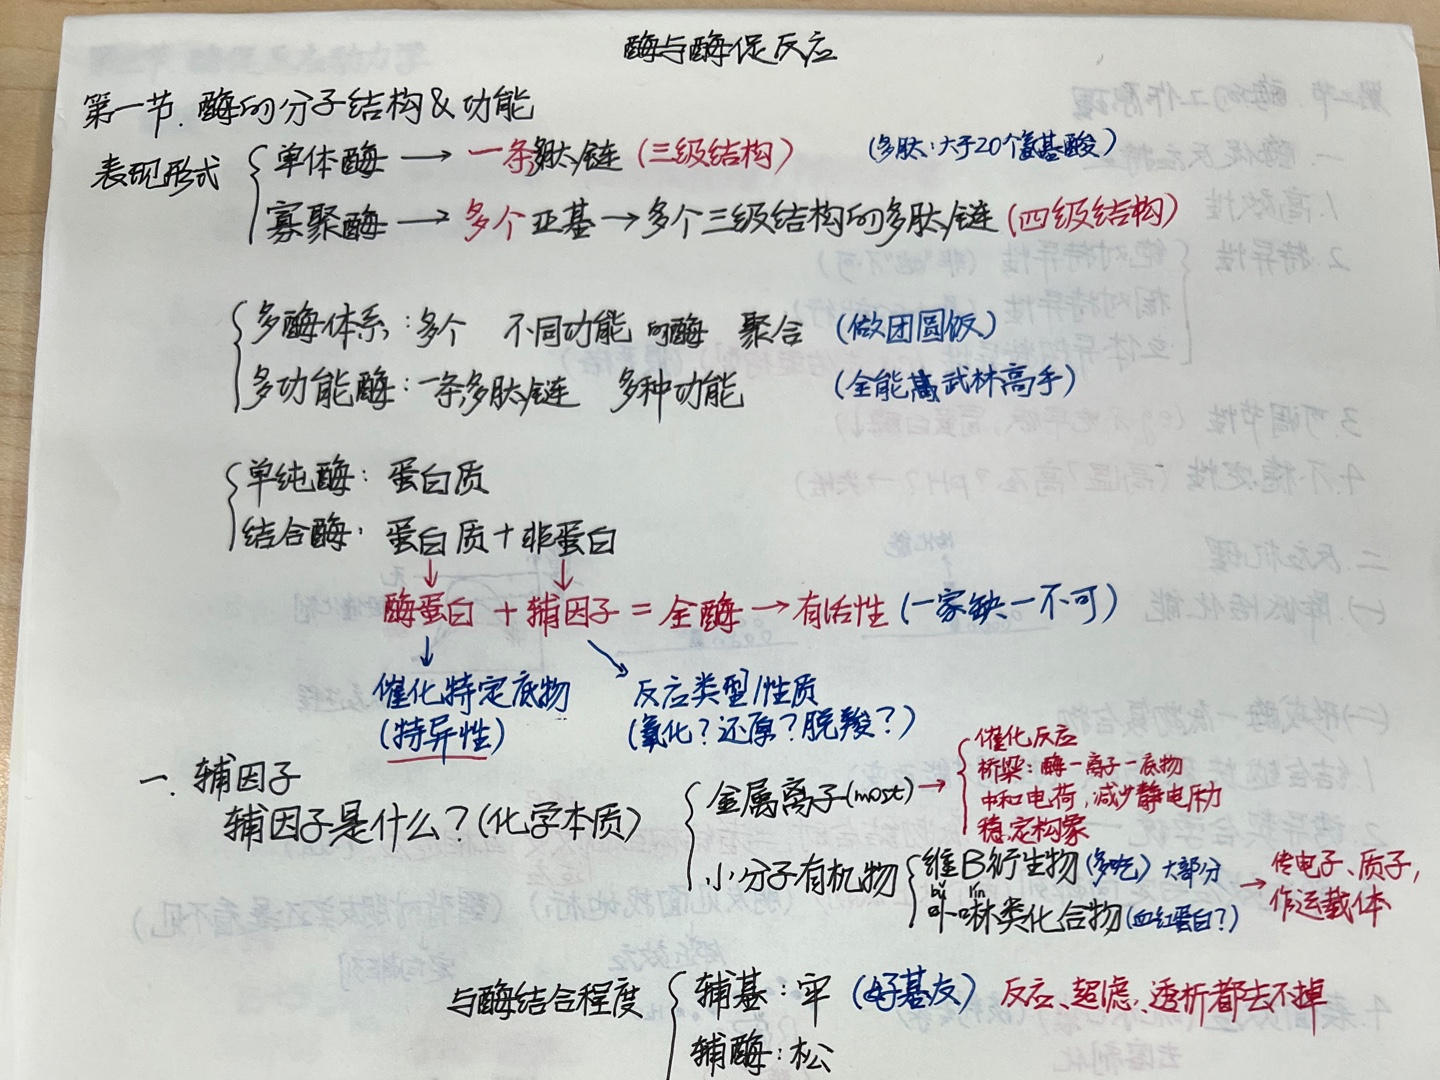 酶与酶促反应
第一节.酶的分子结构&功能
表现形式
单体酶 → 一条多肽链 (三级结构) (多肽:大于20个氨基酸)
寡聚酶 → 多个亚基 → 多个三级结构的多肽链 (四级结构)
多酶体系:多个 不同功能 的酶 聚合 (做团圆饭)
多功能酶:一条多肽链 多种功能 (全能武林高手)
单纯酶:蛋白质
结合酶:蛋白质+非蛋白
酶蛋白 + 辅因子 = 全酶 → 有活性 (一家缺一不可)
催化特定底物 反应类型/性质
(特异性) (氧化?还原?脱羧?)
一.辅因子
辅因子是什么?(化学本质)
金属离子(most) →
催化反应
桥梁:酶-离子-底物
中和电荷,减少静电斥力
稳定构象
小分子有机物
维B衍生物(多吃) 大部分
bǔ lín
卟啉类化合物(血红蛋白?)
→ 传电子、质子,
作运载体
与酶结合程度
辅基:牢 (好基友) 反应、超滤、透析都去不掉
辅酶:松